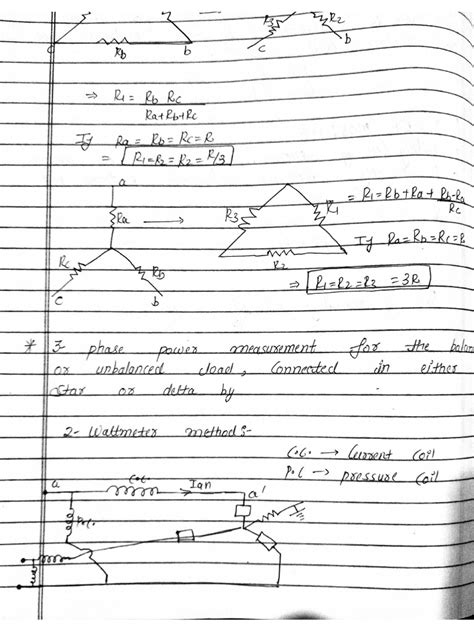 R3
R2
c
Rb
b
c
b
⇒ R1 = Rb Rc
Ra+Rb+Rc
If Ra = Rb = Rc = R
= R1=R2=R2=R/3
a
= R1=Rb+Ra+Rb·Ra
Rc
Ra
R3
R1
If Ra=Rb=Rc=R
Rc
Rb
R2
c
b
⇒ R1=R2=R3 = 3R
* 3- phase power measurement for the balan
or unbalanced load, Connected in either
Star or delta by
2- Wattmeter method:-
C.C. → Current Coil
P.C → pressure Coil
a
C.C.
Ian
a'
P.C.